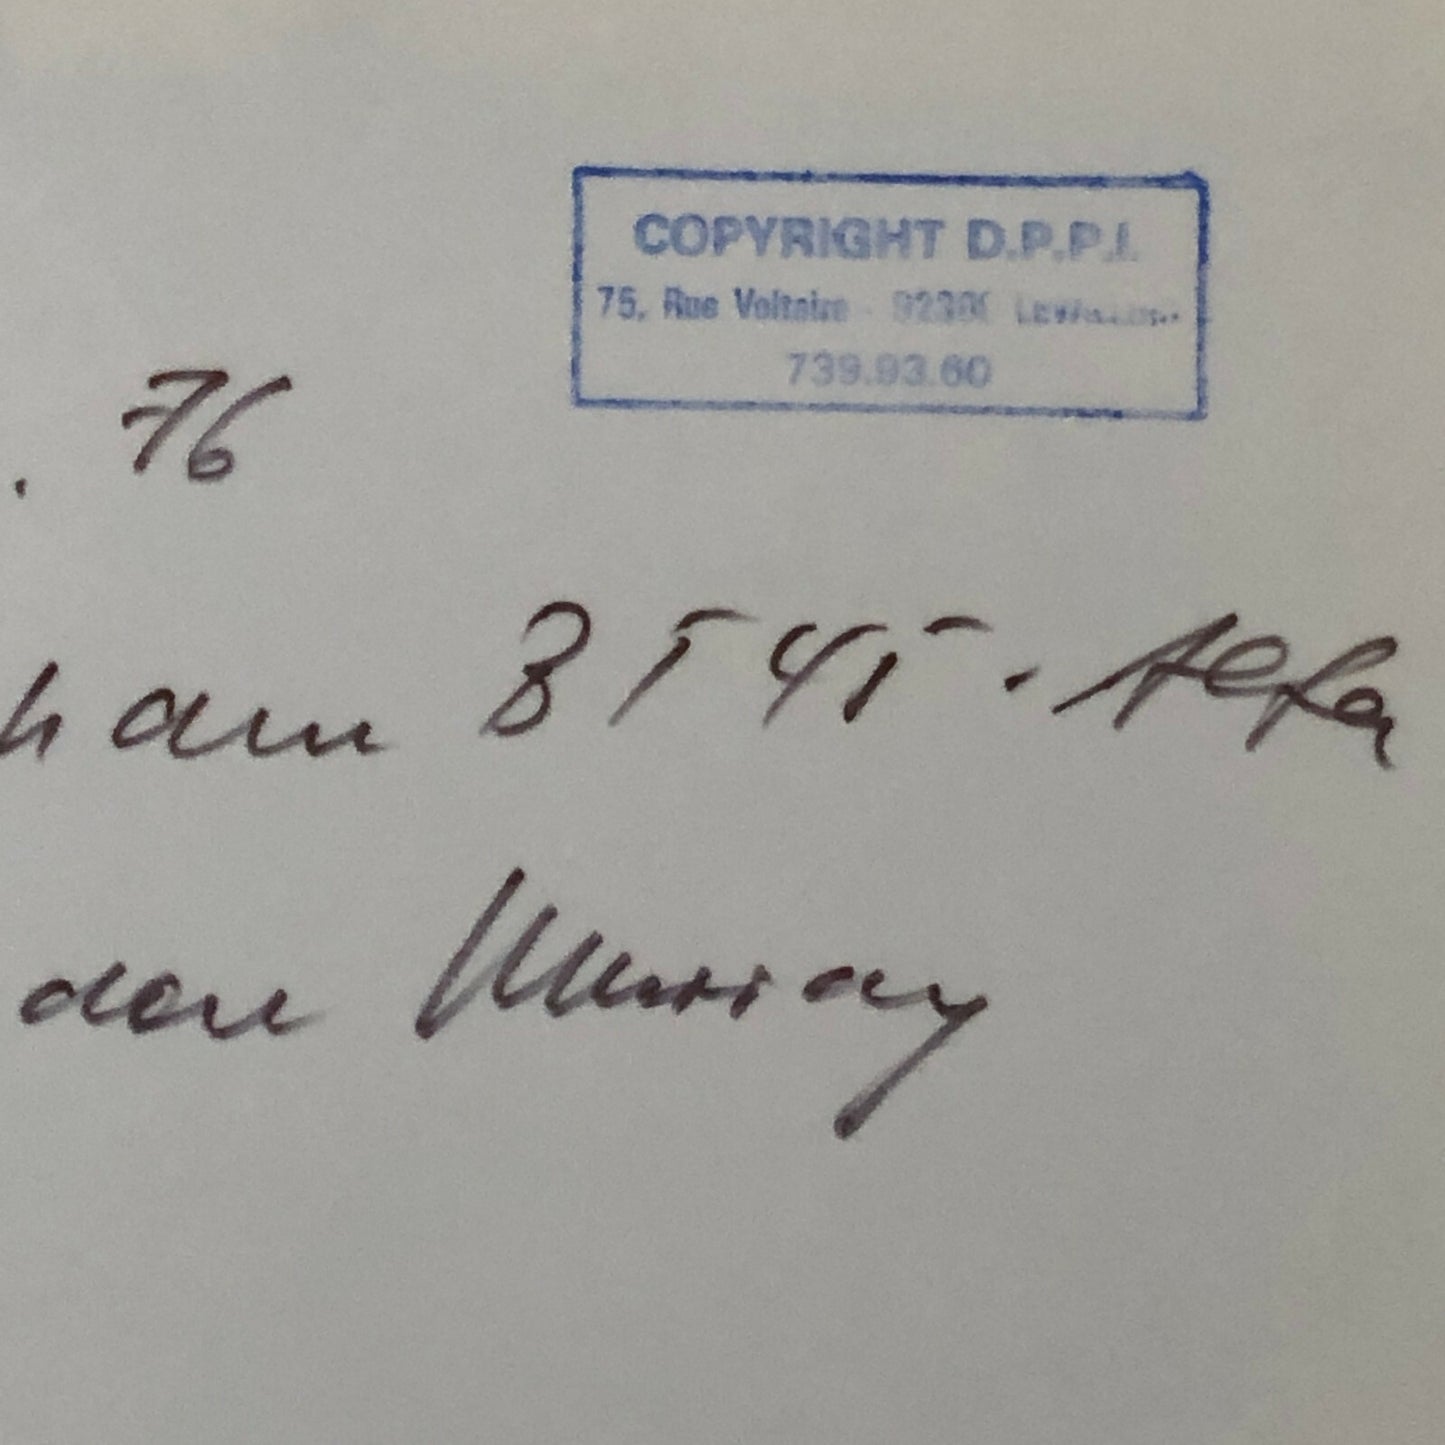 COPYRIGHT D.P.P.I.
75, Rue Voltaire - 92300 LEVALLOIS
739.93.60
. 76
ham BT45 - Alfa
don Murray